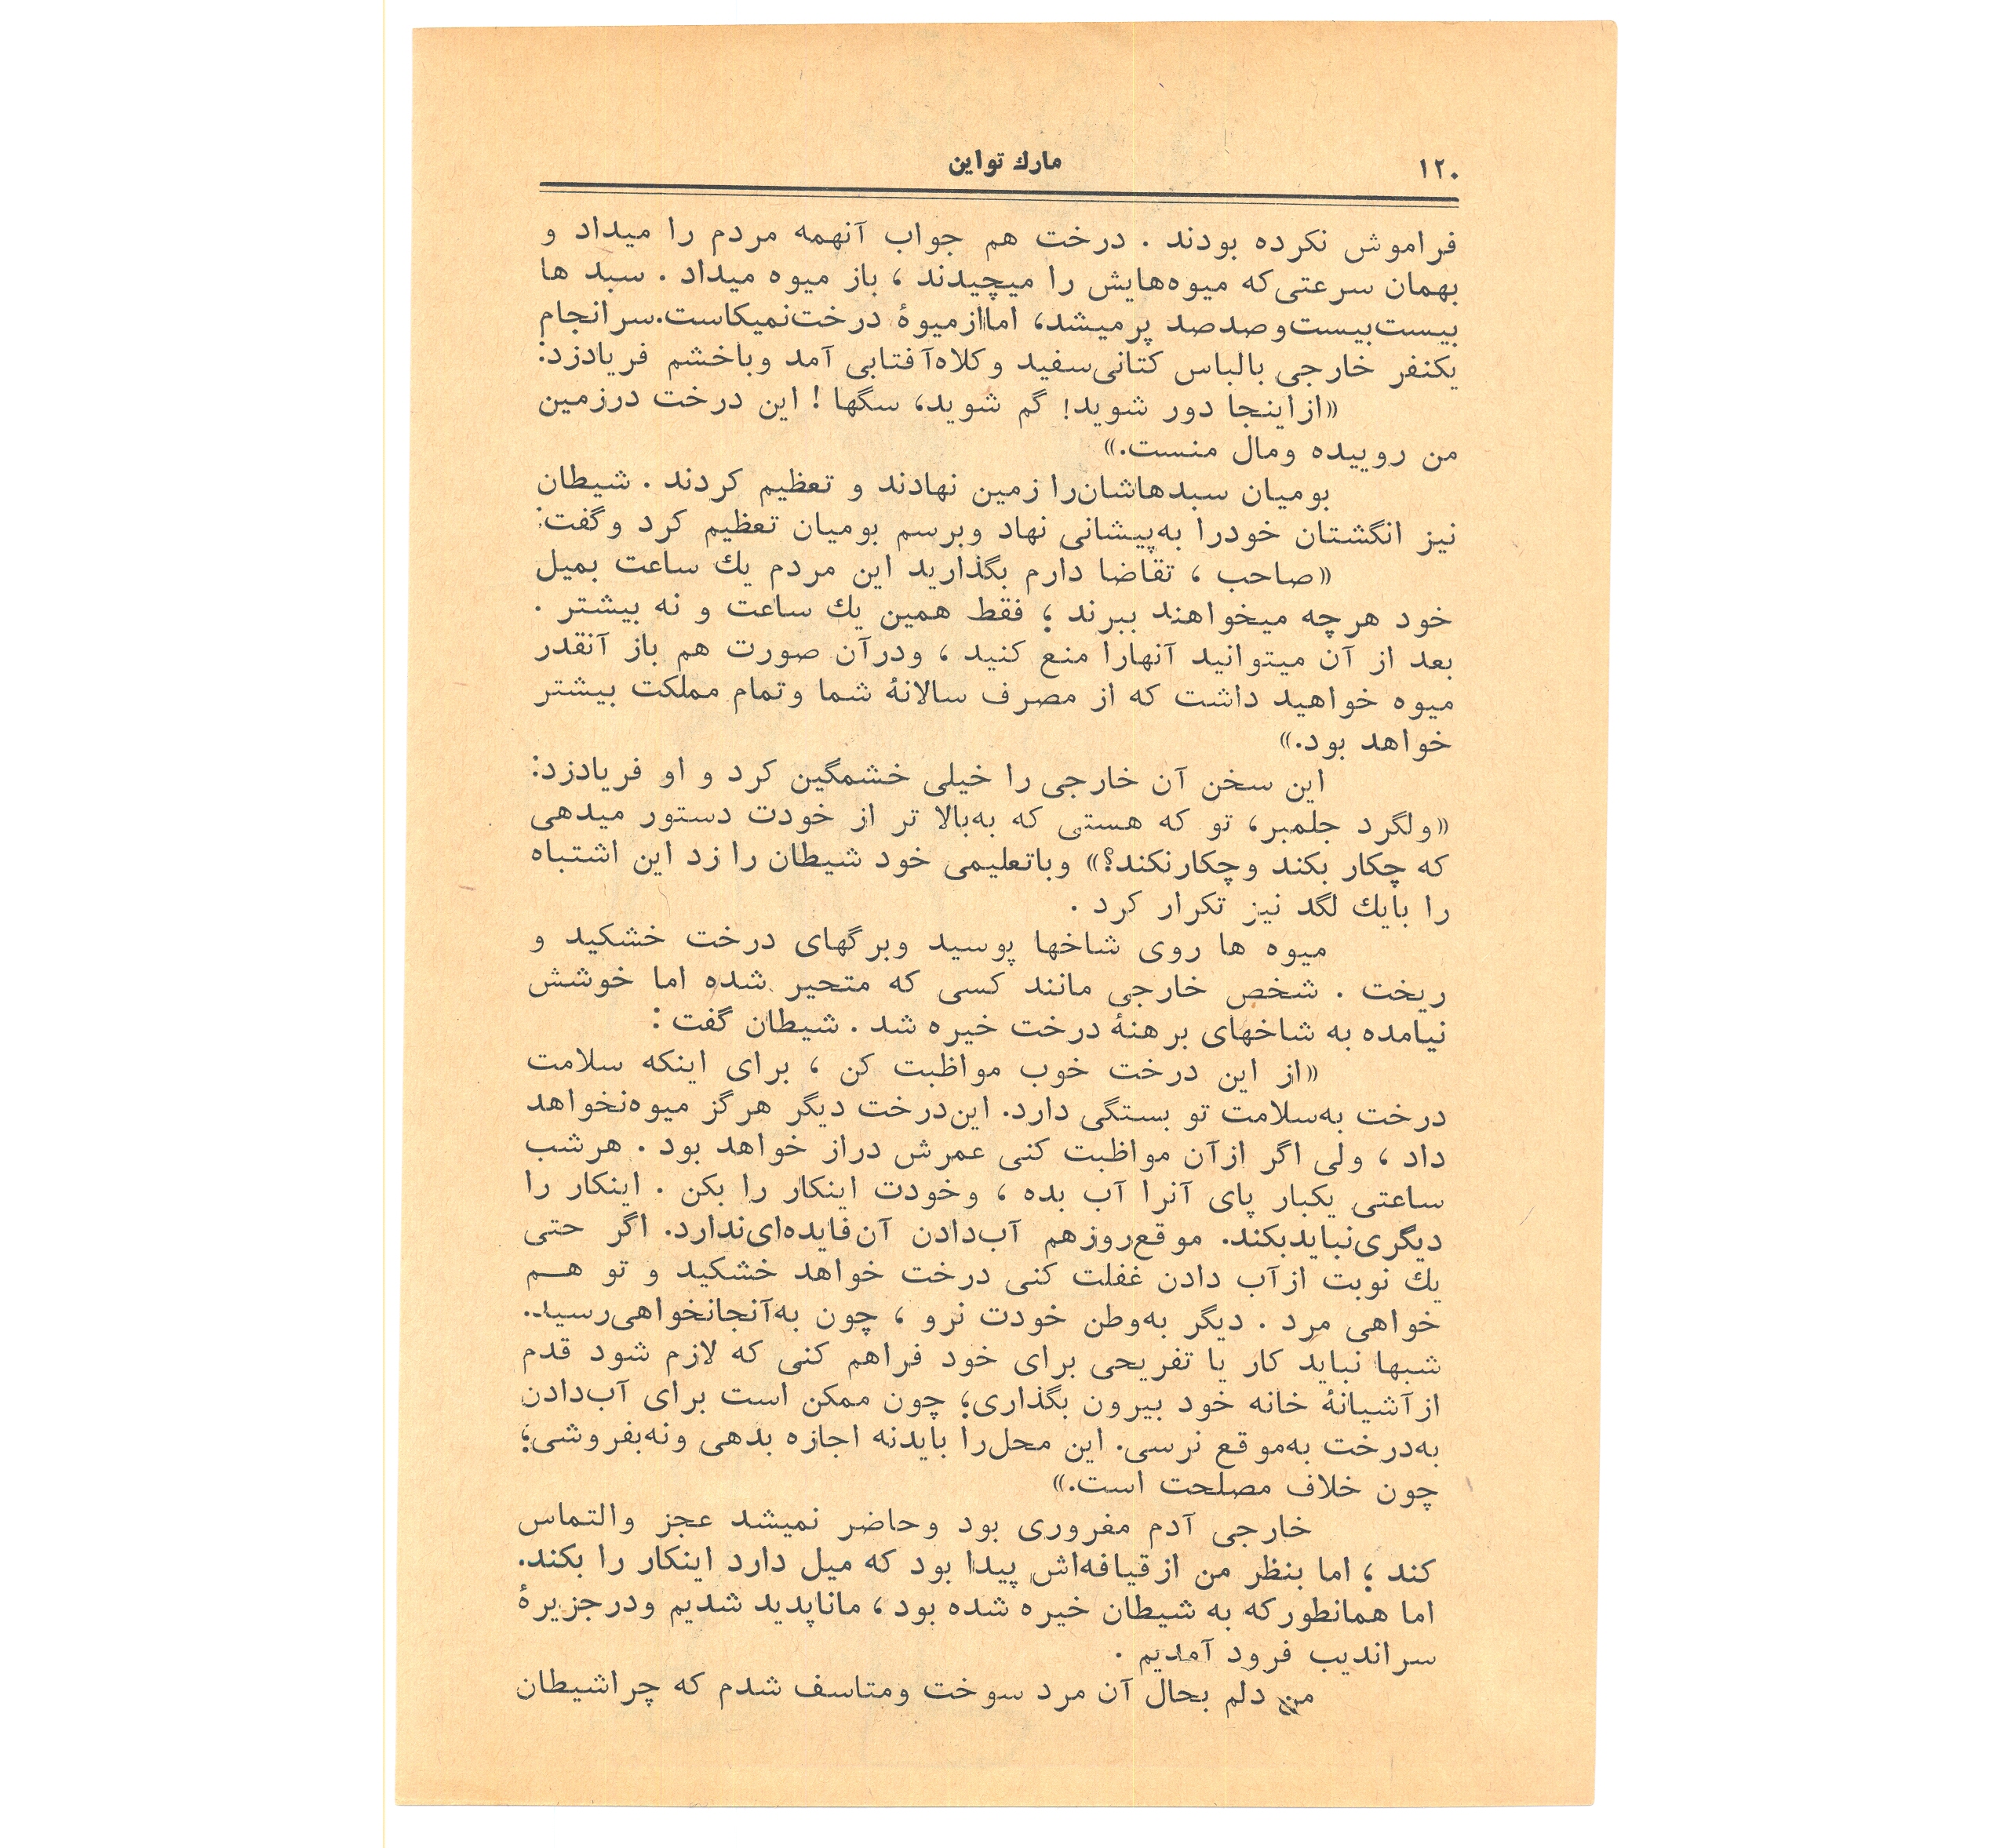 ۱۲۰
مارك تواین
فراموش نکرده بودند . درخت هم جواب آنهمه مردم را میداد و
بهمان سرعتی‌که میوه‌هایش را میچیدند ، باز میوه میداد . سبد ها
بیست‌بیست‌وصدصد پرمیشد، اماازمیوهٔ درخت‌نمیکاست.سرانجام
یکنفر خارجی بالباس کتانی‌سفید وکلاه‌آفتابی آمد وباخشم فریادزد:
«ازاینجا دور شوید! گم شوید، سگها ! این درخت درزمین
من روییده ومال منست.»
بومیان سبدهاشان‌را زمین نهادند و تعظیم کردند . شیطان
نیز انگشتان خودرا به‌پیشانی نهاد وبرسم بومیان تعظیم کرد وگفت:
«صاحب ، تقاضا دارم بگذارید این مردم یك ساعت بمیل
خود هرچه میخواهند ببرند ؛ فقط همین یك ساعت و نه بیشتر .
بعد از آن میتوانید آنهارا منع کنید ، ودرآن صورت هم باز آنقدر
میوه خواهید داشت که از مصرف سالانهٔ شما وتمام مملکت بیشتر
خواهد بود.»
این سخن آن خارجی را خیلی خشمگین کرد و او فریادزد:
«ولگرد جلمبر، تو که هستی که به‌بالا تر از خودت دستور میدهی
که چکار بکند وچکارنکند؟» وباتعلیمی خود شیطان را زد این اشتباه
را بایك لگد نیز تکرار کرد .
میوه ها روی شاخها پوسید وبرگهای درخت خشکید و
ریخت . شخص خارجی مانند کسی که متحیر شده اما خوشش
نیامده به شاخهای برهنهٔ درخت خیره شد . شیطان گفت :
«از این درخت خوب مواظبت کن ، برای اینکه سلامت
درخت به‌سلامت تو بستگی دارد. این‌درخت دیگر هرگز میوه‌نخواهد
داد ، ولی اگر ازآن مواظبت کنی عمرش دراز خواهد بود . هرشب
ساعتی یکبار پای آنرا آب بده ، وخودت اینکار را بکن . اینکار را
دیگری‌نبایدبکند. موقع‌روزهم آب‌دادن آن‌فایده‌ای‌ندارد. اگر حتی
یك نوبت ازآب دادن غفلت کنی درخت خواهد خشکید و تو هـم
خواهی مرد . دیگر به‌وطن خودت نرو ، چون به‌آنجانخواهی‌رسید.
شبها نباید کار یا تفریحی برای خود فراهم کنی که لازم شود قدم
ازآشیانهٔ خانه خود بیرون بگذاری؛ چون ممکن است برای آب‌دادن
به‌درخت به‌موقع نرسی. این محل‌را بایدنه اجازه بدهی ونه‌بفروشی؛
چون خلاف مصلحت است.»
خارجی آدم مغروری بود وحاضر نمیشد عجز والتماس
کند ؛ اما بنظر من ازقیافه‌اش پیدا بود که میل دارد اینکار را بکند.
اما همانطورکه به شیطان خیره شده بود ، ماناپدید شدیم ودرجزیرهٔ
سراندیب فرود آمدیم .
من دلم بحال آن مرد سوخت ومتاسف شدم که چراشیطان